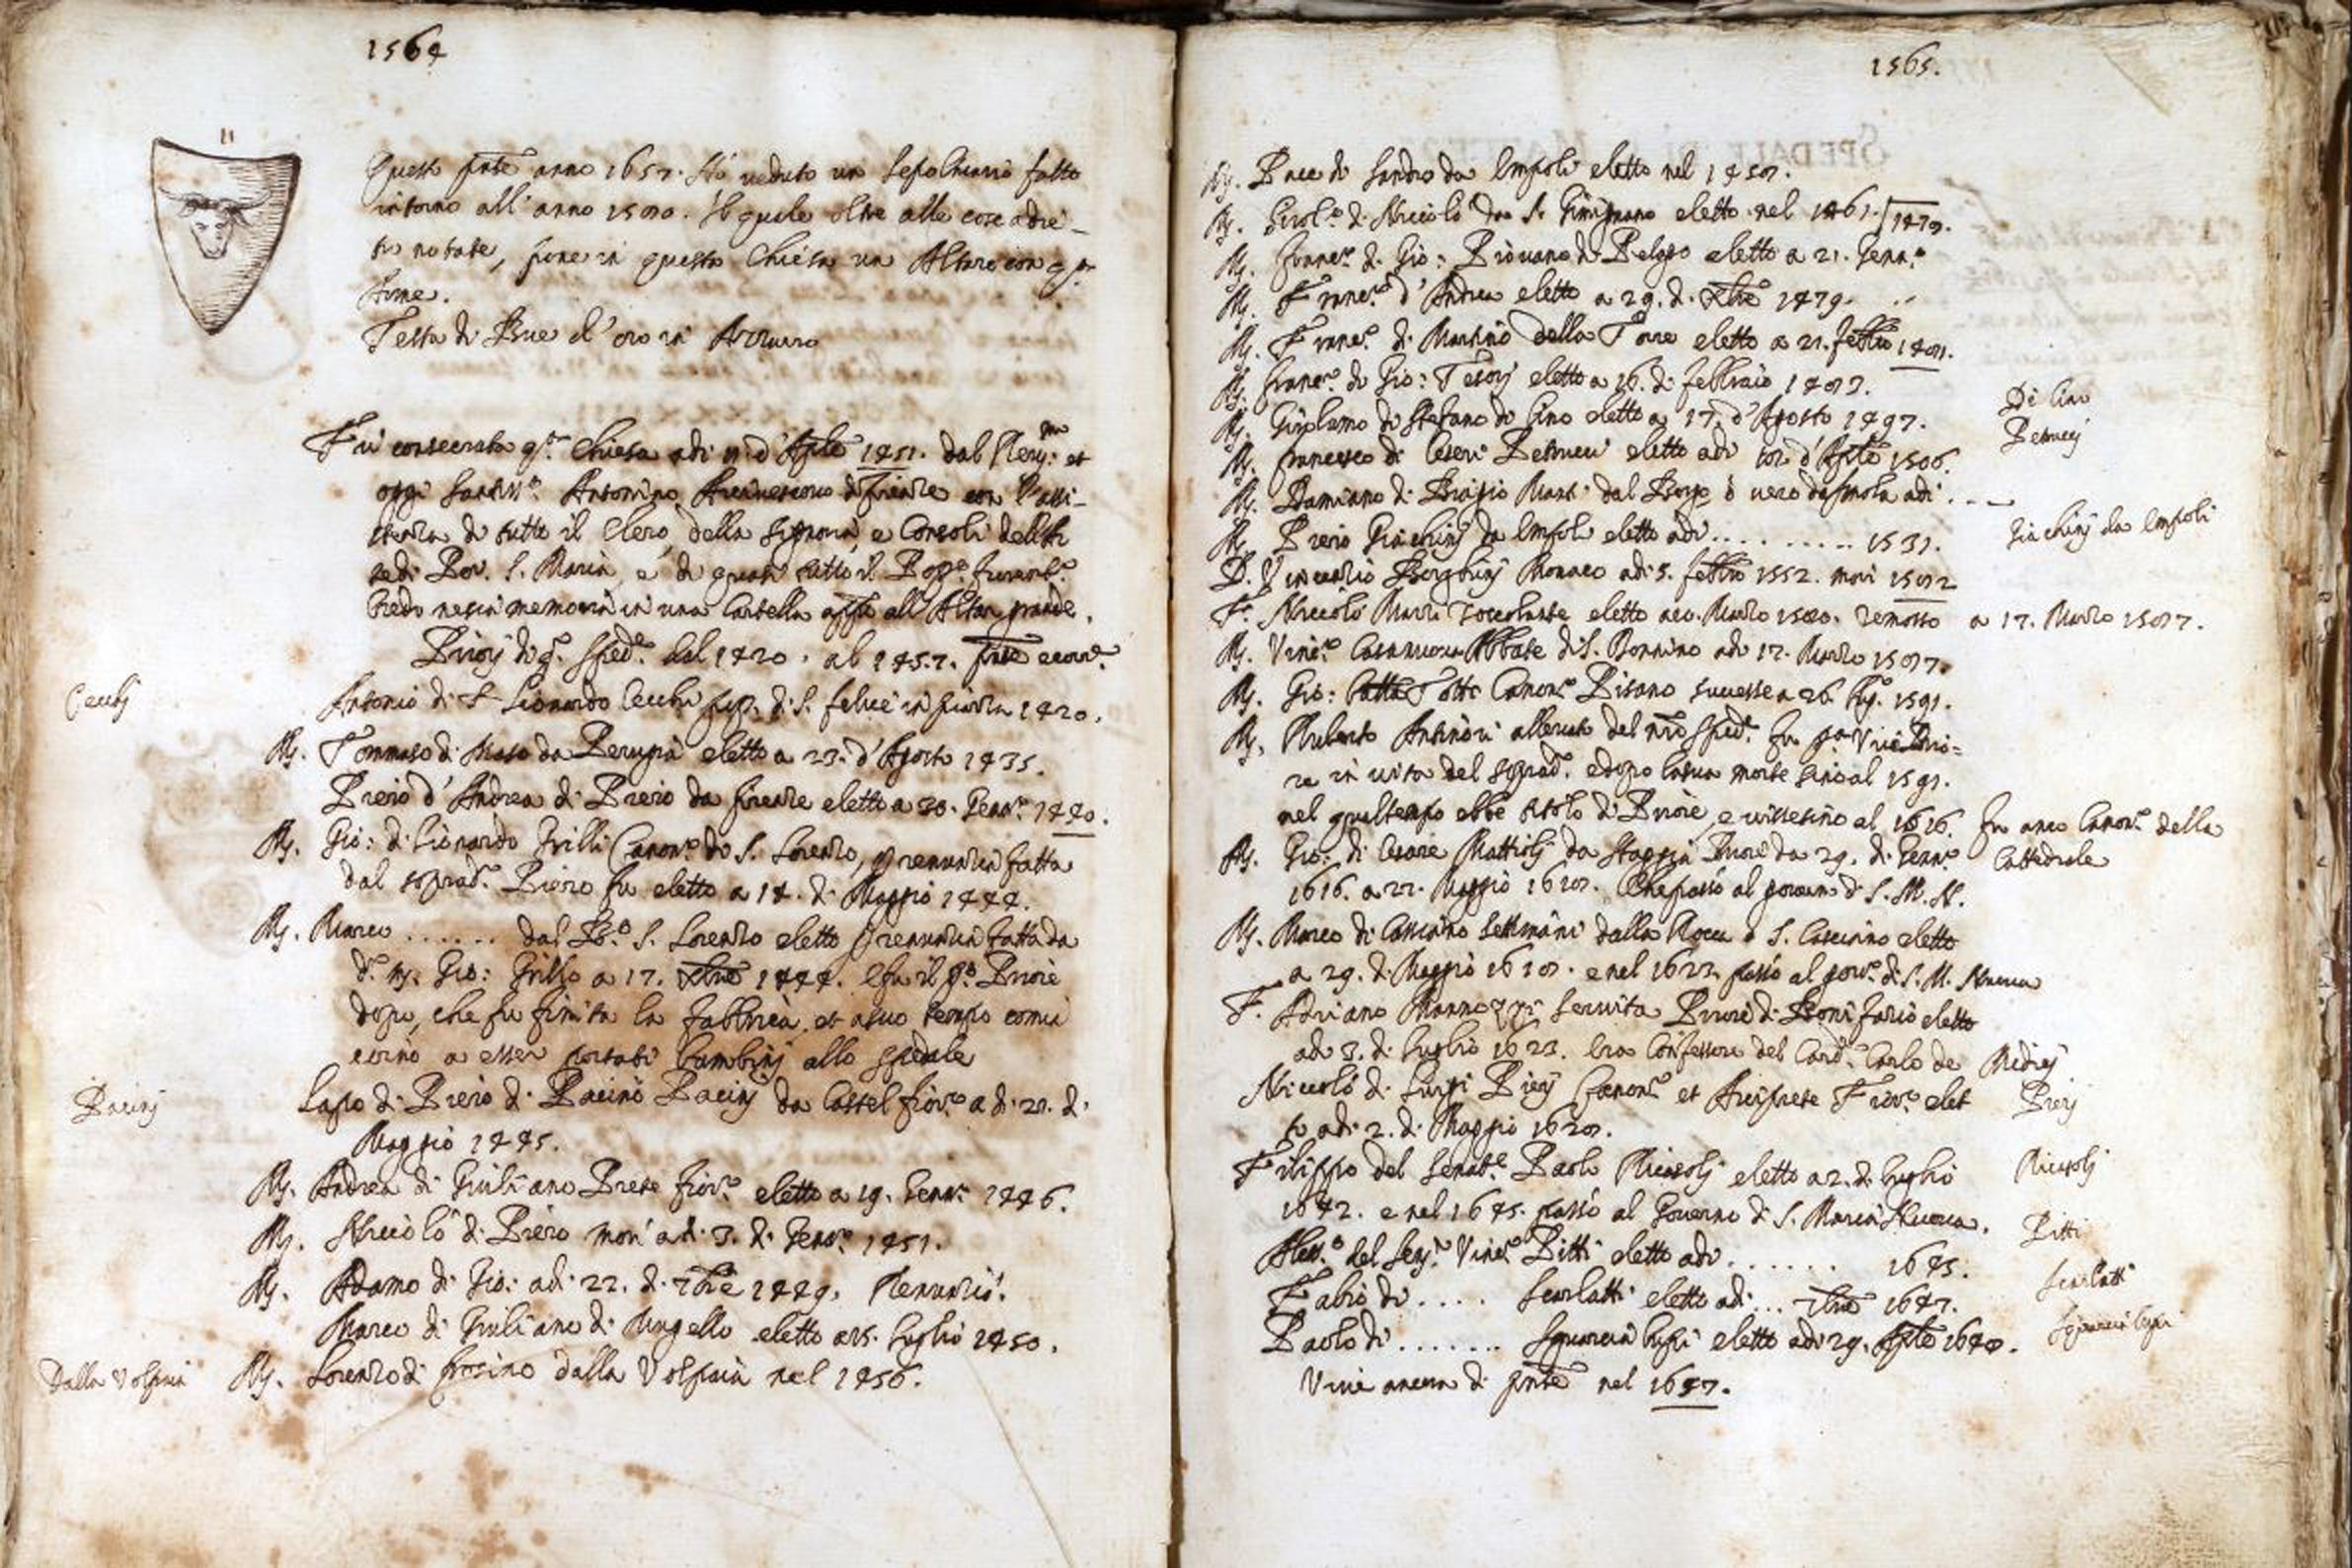 1564
11
Questo pnte anno 1657. Hò veduto un Sepoltuario fatto
intorno all'anno 1580. Il quale oltre alle cose adrie-
to notate, pone in questa Chiesa un Altare con qta
Arme.
Testa di Bue d'oro in Azzurro
Fù consecrata qta Chiesa adi d'Aple 1451. dal Revmo: et
oggi Santissmo Antonino Arcivescovo di Firenze con l'assi-
stenza di tutto il Clero, della Signoria, e Consoli dell'Ar
te di Por. S. Maria, e di quasi tutto il Popo. Fiorento.
Credo ne sia memoria in una Cartella all'Altar grande.
Priori di qo. Sped. dal 1420. al 1457.
Cecchj
Antonio di Lionardo Cecchi pop. di S. Felice in piazza 1420.
Mr. Tommaso di Maso da Perugia eletto a 23. d'Agosto 1435.
Piero d'Andrea di Piero da Firenze eletto a 20. Genno. 1440.
Mr. Gio: di Lionardo Grilli Canonco. di S. Lorenzo, p renunzia fatta
dal soprado. Piero fu eletto a 14. di Maggio 1444.
Mr. Marco ....... dal Bo. S. Lorenzo eletto p renunzia fatta da
do. mr. Gio: Grillo a 17. Xbre 1444. e fu il po. Priore
dopo, che fu finita la fabbrica, et a suo tempo comin
corno a esser portati bambinj allo spedale
Pacinj
Lapo di Piero di Pacino Pacinj da Castel fiorno. a di 21. di
Maggio 1445.
Mr. Andrea di Giuliano Prete fiorno. eletto a 19. Genno. 1446.
Mr. Niccolò di Piero morì adi 3. di Genno. 1451.
Mr. Adamo di Gio: adi 22. di 7bre 1449. Renunziò.
Marco di Giuliano di Mugello eletto a 15. Luglio 1450.
Dalla Volpaia
Mr. Lorenzo di Frosino dalla Volpaia nel 1456.
1565.
Mr. Pace di Sandro da Empoli eletto nel 1458.
Mr. Girolo. di Niccolò da S. Gimignano eletto nel 1461. 1479.
Mr. Franco. di Gio: Piovano di Pelago eletto a 21. Genno.
Mr. Franco. d'Andrea eletto a 29. di Xbre 1479.
Mr. Franco. di Martino della Torre eletto a 21. febbro 1481.
Mr. Franco. di Gio: Tesorj eletto a 16. di febbraio 1483.
Mr. Girolamo di Stefano di Cino eletto a 17. d'Agosto 1497.
Di Cino
Mr. Francesco di Ceseri Petrucci eletto adi d'Aple 1506.
Petruccj
Mr. Damiano di Biagio Mant. dal Borgo ò vero da Imola adi ...
Mr. Piero Giachinj da Empoli eletto adi ......... 1531.
Giachinj da Empoli
D. Vincenzio Borghinj Monaco adi 5. febbro 1552. morì 1582
Fr. Niccolò Mazzi eletto Marzo 1580. remosso a 17. Marzo 1587.
Mr. Vinco. Casanuova Abbate di S. Bonnino adi 17. Marzo 1587.
Mr. Gio: Totti Canonco. Pisano successe a 26. Lug. 1591.
Mr. Ruberto Antinori allevato del nro sped. fu po. Vice Prio=
re in vita del soprado. e dopo la sua morte sino al 1591.
nel qual tempo ebbe titolo di Priore, e visse sino al 1616. fu anco Canonco. della
Cattedrale
Mr. Gio: di Cesare Mattiolj da Staggia Priore da 29. di Genno.
1616. a 22. Maggio 1618. Che passò al governo di S. M. N.
Mr. Marco di Cassiano Settimani dalla Rocca à S. Casciano eletto
a 29. di Maggio 1618. e nel 1623. passò al govo. di S. M. Nuova
F. Adriano Mannozzi Servita Priore di Bonifazio eletto
adi 3. di Luglio 1623. era Confessore del Cardle. Carlo de Medicj
Niccolò di Luigi Pierj Canonco. et Arciprete Fiorno. elet
to adi 2. di Maggio 1628.
Pierj
Filippo del Senate. Paolo Ricasolj eletto a 2. di Luglio
1642. e nel 1645. passò al Governo di S. Maria Nuova.
Ricasolj
Alesso. del Senre. Vinco. Pitti eletto adi ....... 1645.
Pitti
Fabio di .... Scarlatti eletto adi ... 1647.
Scarlatti
Paolo di ....... Squarcialupi eletto adi 29. Aple 1648.
Squarcialupi
Vive ancora di pnte nel 1657.